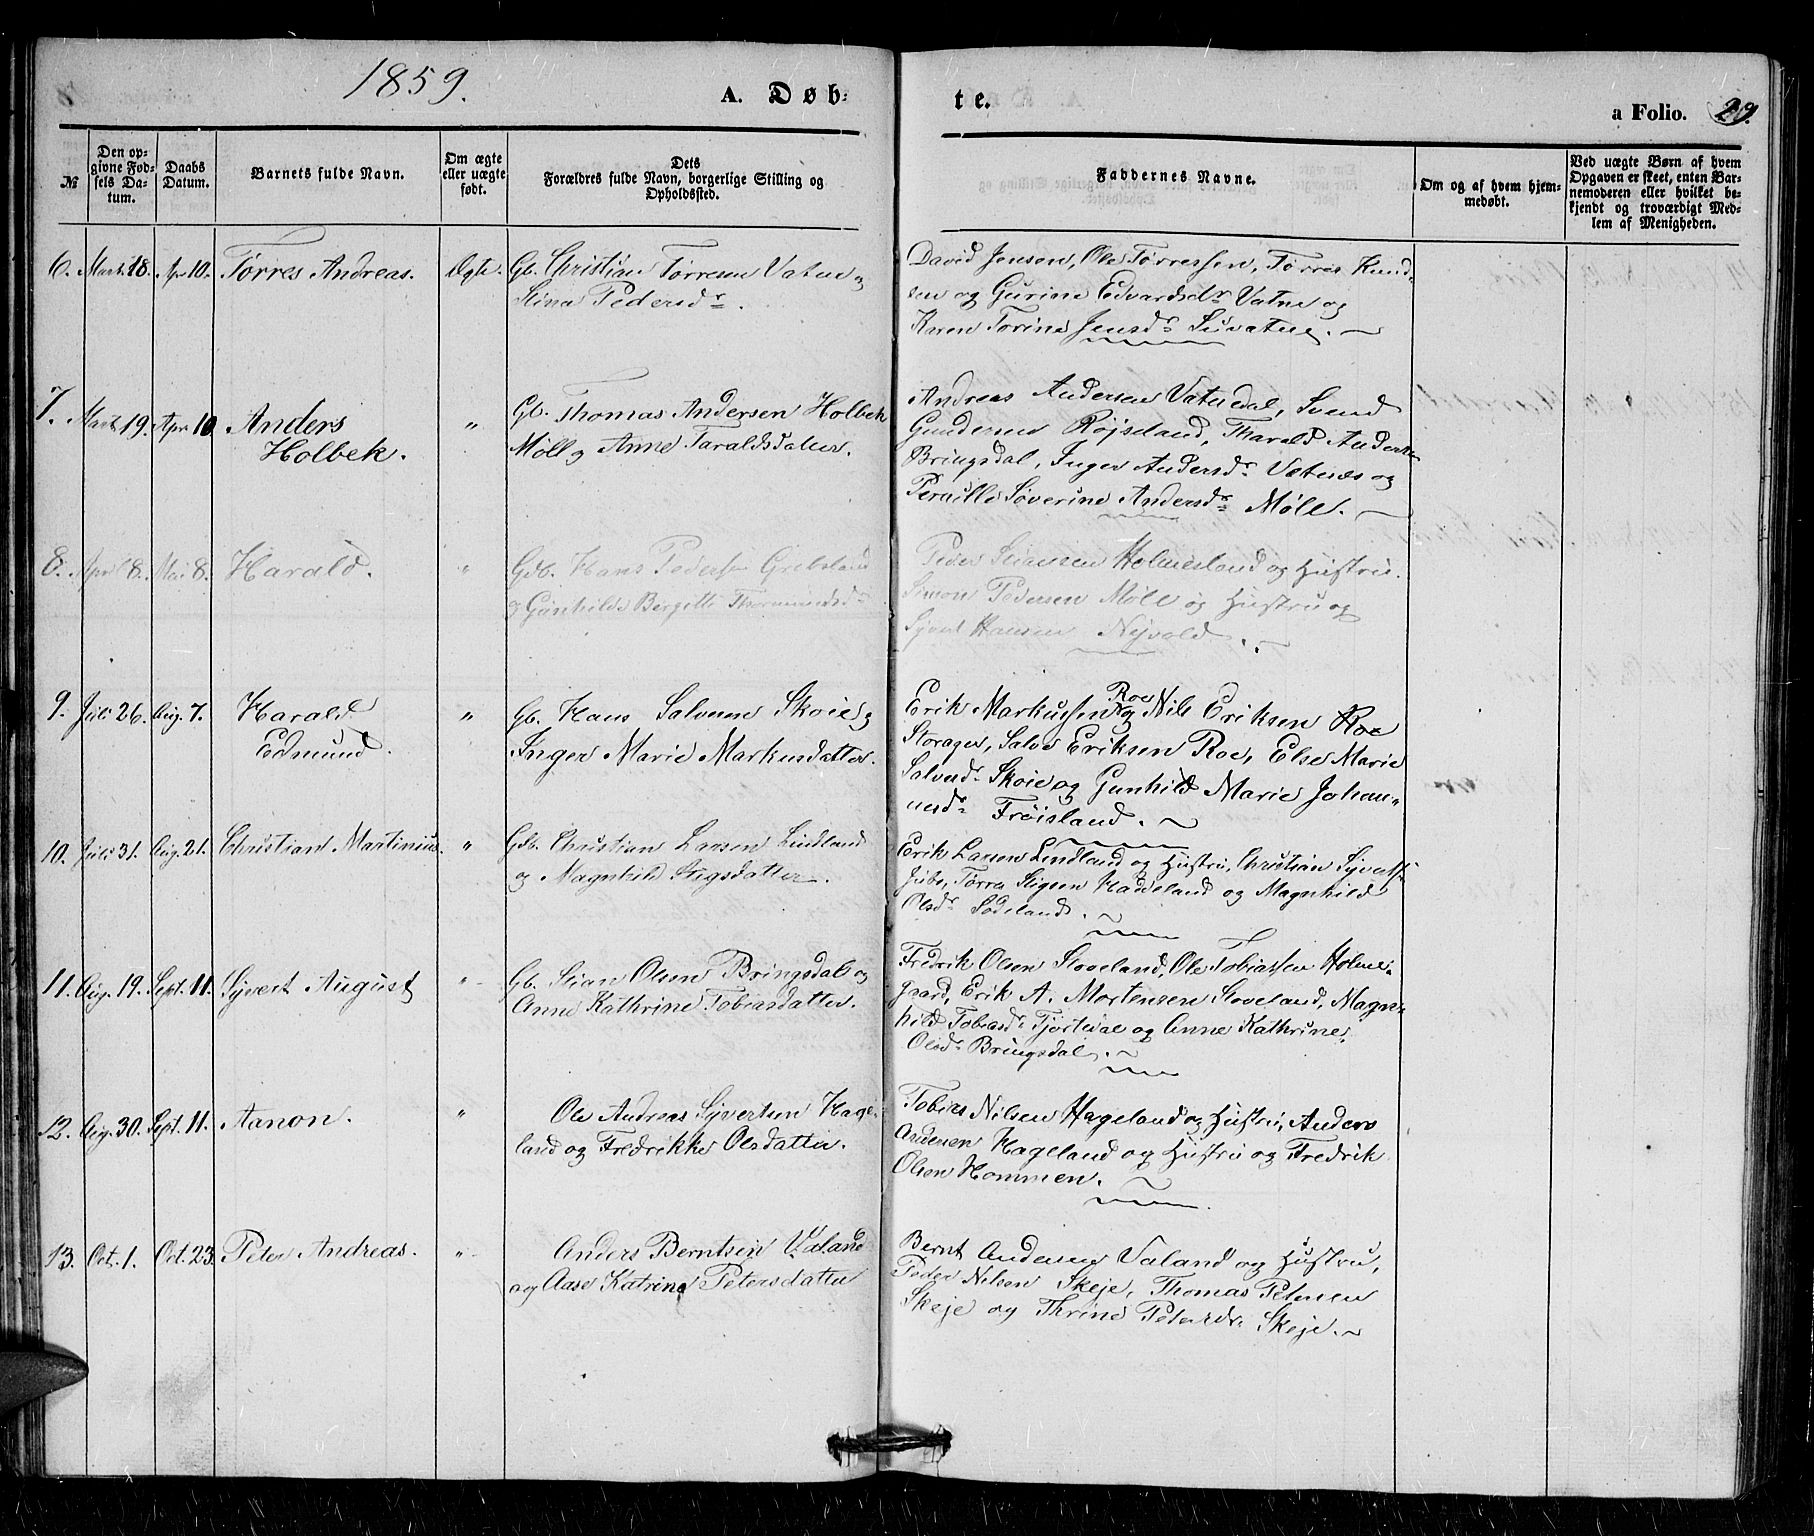 1859.
A. Døb-
te.
a Folio. 29.
№
Den op-
givne Fød-
sels Da-
tum.
Daabs
Datum.
Barnets fulde Navn.
Om ægte
eller uægte
født.
Dets
Forældres fulde Navn, borgerlige Stilling og
Opholdssted.
Faddernes Navne.
Om og af hvem hjem-
medøbt.
Ved uægte Børn af hvem
Opgaven er skeet, enten Bar-
nemoderen eller hvilket be-
kjendt og troværdigt Med-
lem af Menigheden.
6. Mart. 18. Apr 10. Tørres Andreas. Ægte. Gb. Christian Tørresen Vatne og
Stina Pedersdr.
David Jensen, Ole Tørressen, Tørres Knud-
sen og Gurine Edvardsdr Vatne og
Karen Torine Jensdr
7. Mart. 19. Apr 10. Anders
Holbek.
" Gb. Thomas Andersen Holbek
Møll og Anne Taraldsdatter.
Andreas Andersen Vatnedal, Svend
Gundersen Røjseland, Tharald Anders.
Bringsdal, Inger Andersdr Vatnes og
Pernille Severine Andersdr Møll.
8. April 8. Mai 8. Harald. " Gdb. Hans Pedersen Grebsland
og Gunhilde Birgitte
Peder Hansen Holmesland og Hustru.
Simon Pedersen Møll og Hustru og
Syvert Hansen Nyvold.
9. Juli 26. Aug. 7. Harald
Edmund.
" Gb. Hans Salvesen Skoie og
Inger Marie Markusdatter.
Erik Markussen Roe og Nils Eriksen Roe
Storager, Salve Eriksen Roe, Else Marie
Salvesdr Skoie og Gunhild Marie Johan-
nesdr Frøisland.
10. Juli 31. Aug. 21. Christian Martinius. " Gdb. Christian Larsen Lindland
og Magnhild Stigsdatter.
Erik Larsen Lindland og Hustru, Christian Syverts.
Tørres Stigsen Hadeland og Magnhild
Olsdr Sodeland.
11. Aug. 19. Sept. 11. Syvert August " Gb. Stian Olsen Bringsdal og
Anne Kathrine Tobiasdatter.
Fredrik Olsen Stoveland, Ole Tobiassen Holme-
gaard, Erik A. Mortensen Stoveland, Magn-
hild Tobiasdr Tjortedal og Anne Kathrine
Olsdr Bringsdal.
12. Aug. 30. Sept. 11. Aanon. " Ole Andreas Syvertsen Hage-
land og Fredrikke Olsdatter.
Tobias Nilsen Hageland og Hustru, Anders
Andersen Hageland og Hustru og Fredrik
Olsen Hommen.
13. Oct. 1. Oct. 23. Peter Andreas. " Anders Berntsen Valand
og Aase Katrine Petersdatter
Bernt Andersen Valand og Hustru,
Peder Nilsen Skeje, Thomas Petersen
Skeje og Thrine Petersdr Skeje.